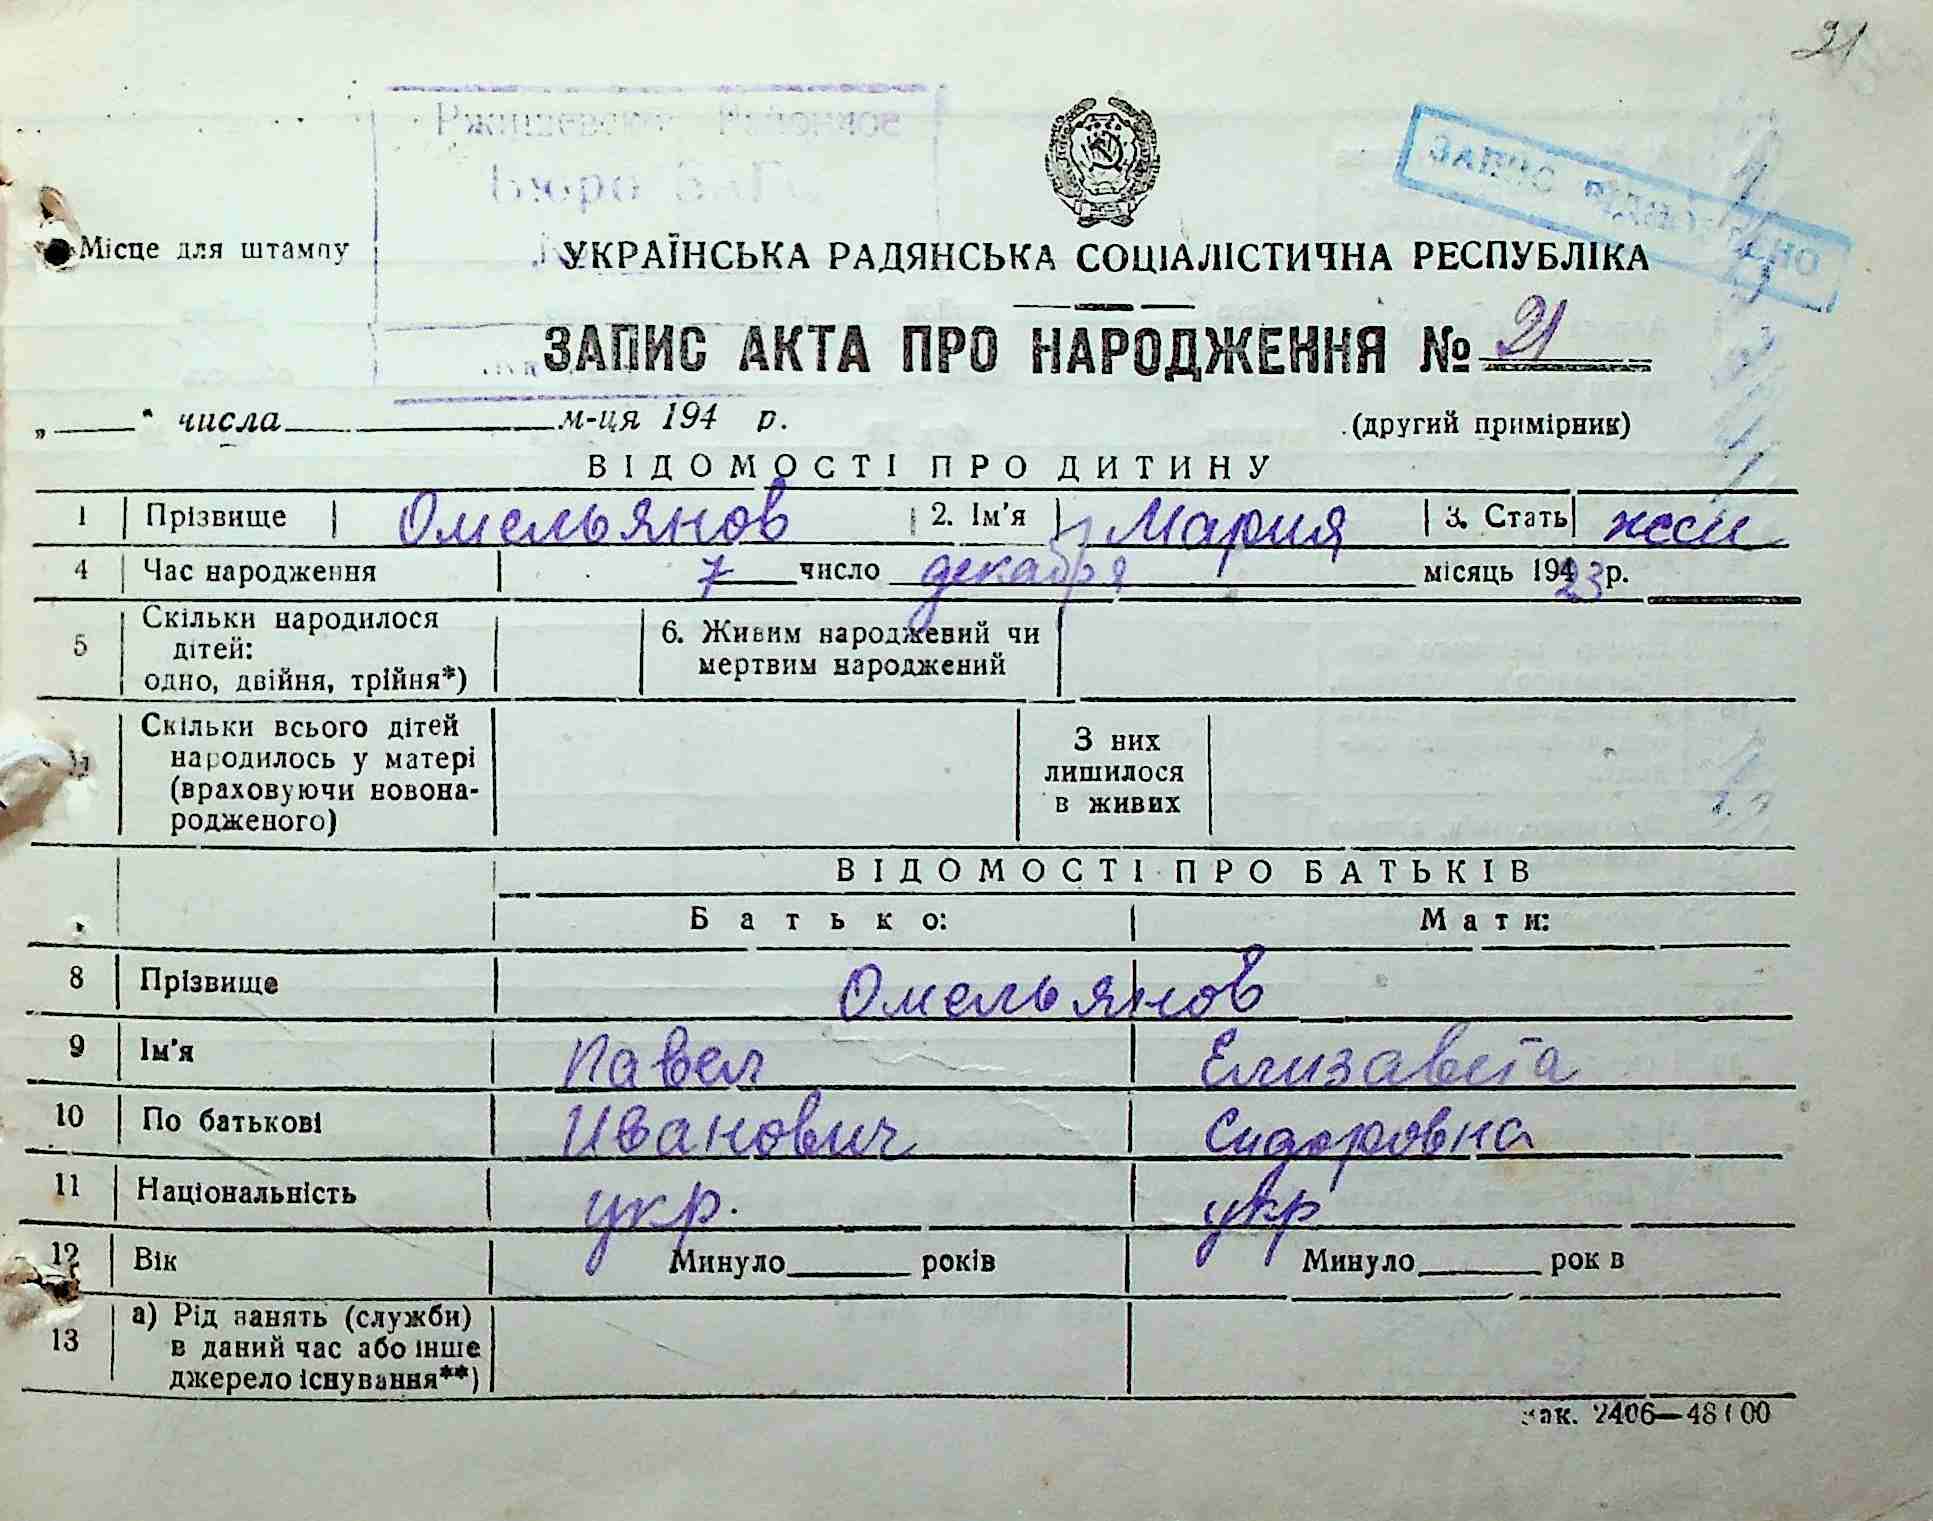 21
Ржищевское Районное
Бюро ЗАГС
ЗАПИС ВІДНОВЛЕНО
Місце для штампу
УКРАЇНСЬКА РАДЯНСЬКА СОЦІАЛІСТИЧНА РЕСПУБЛІКА
ЗАПИС АКТА ПРО НАРОДЖЕННЯ № 21
„ " числа м-ця 194 р. (другий примірник)
ВІДОМОСТІ ПРО ДИТИНУ
1 Прізвище Омельянов 2. Ім'я Мария 3. Стать жен
4 Час народження 7 число декабря місяць 1923 р.
5 Скільки народилося дітей: одно, двійня, трійня*) 6. Живим народжений чи мертвим народжений
Скільки всього дітей народилось у матері (враховуючи новона-
родженого) З них лишилося в живих
ВІДОМОСТІ ПРО БАТЬКІВ
Батько: Мати:
8 Прізвище Омельянов
9 Ім'я Павел Елизавета
10 По батькові Иванович Сидоровна
11 Національність укр. укр
12 Вік Минуло років Минуло рок в
13 а) Рід занять (служби) в даний час або інше джерело існування**)
зак. 2406—48100